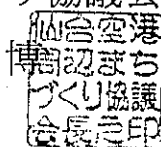 協議会
博
仙台空港
周辺まち
づくり協議
会長之印